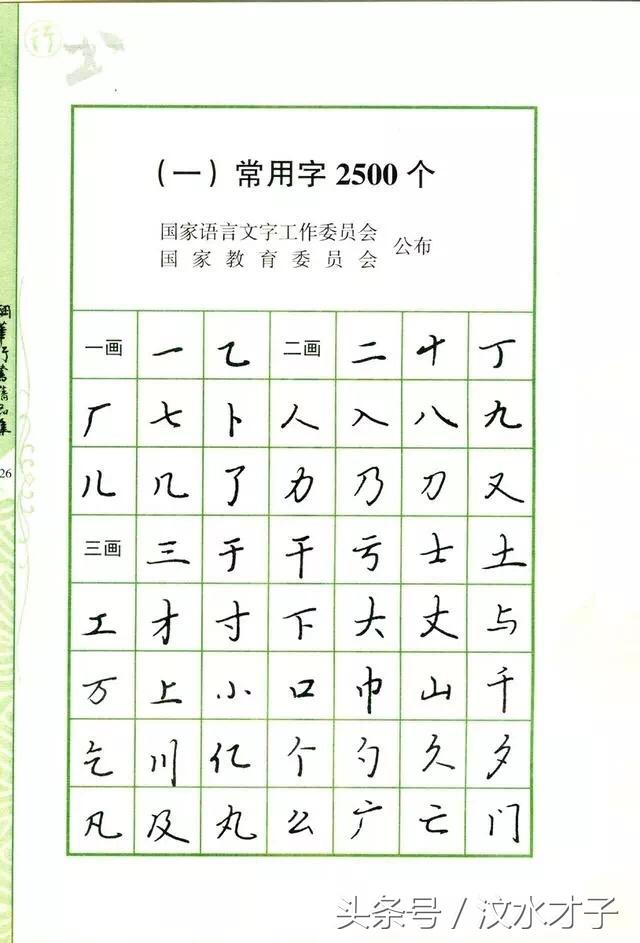 行
书
（一）常用字 2500 个
国家语言文字工作委员会
国家教育委员会
公布
一画 一 乙 二画 二 十 丁
厂 七 卜 人 入 八 九
儿 几 了 力 乃 刀 又
三画 三 于 干 亏 士 土
工 才 寸 下 大 丈 与
万 上 小 口 巾 山 千
乞 川 亿 个 勺 久 夕
凡 及 丸 么 广 亡 门
華行書精品集
26
头条号／汶水才子